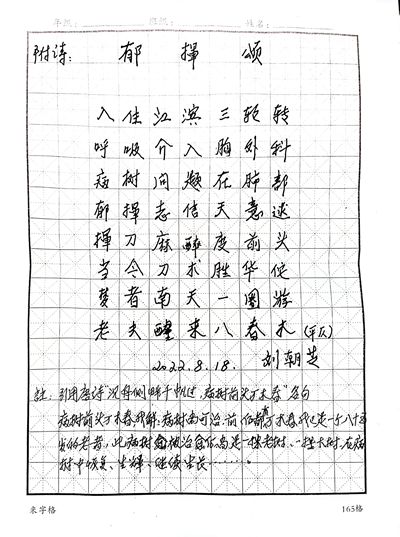 年级: 班级: 姓名:
附诗: 郁挥颂
入住江滨三轮转
呼吸介入胸外科
病树问题在肺部
郁挥志信天意述
挥刀麻醉度前头
当今刀术胜华佗
梦者南天一圈游
老夫醒来八春木 (平仄)
2022.8.18. 刘朝芝
注: 引用唐诗“沉舟侧畔千帆过, 病树前头万木春”名句
病树前头万木春 病树尚可治 前 万木春 我已是一个八十
发的老者, 此病树 被治愈 是一棵老树、一些大树, 在病
树中恢复、生辉、继续生长………
米字格 165格